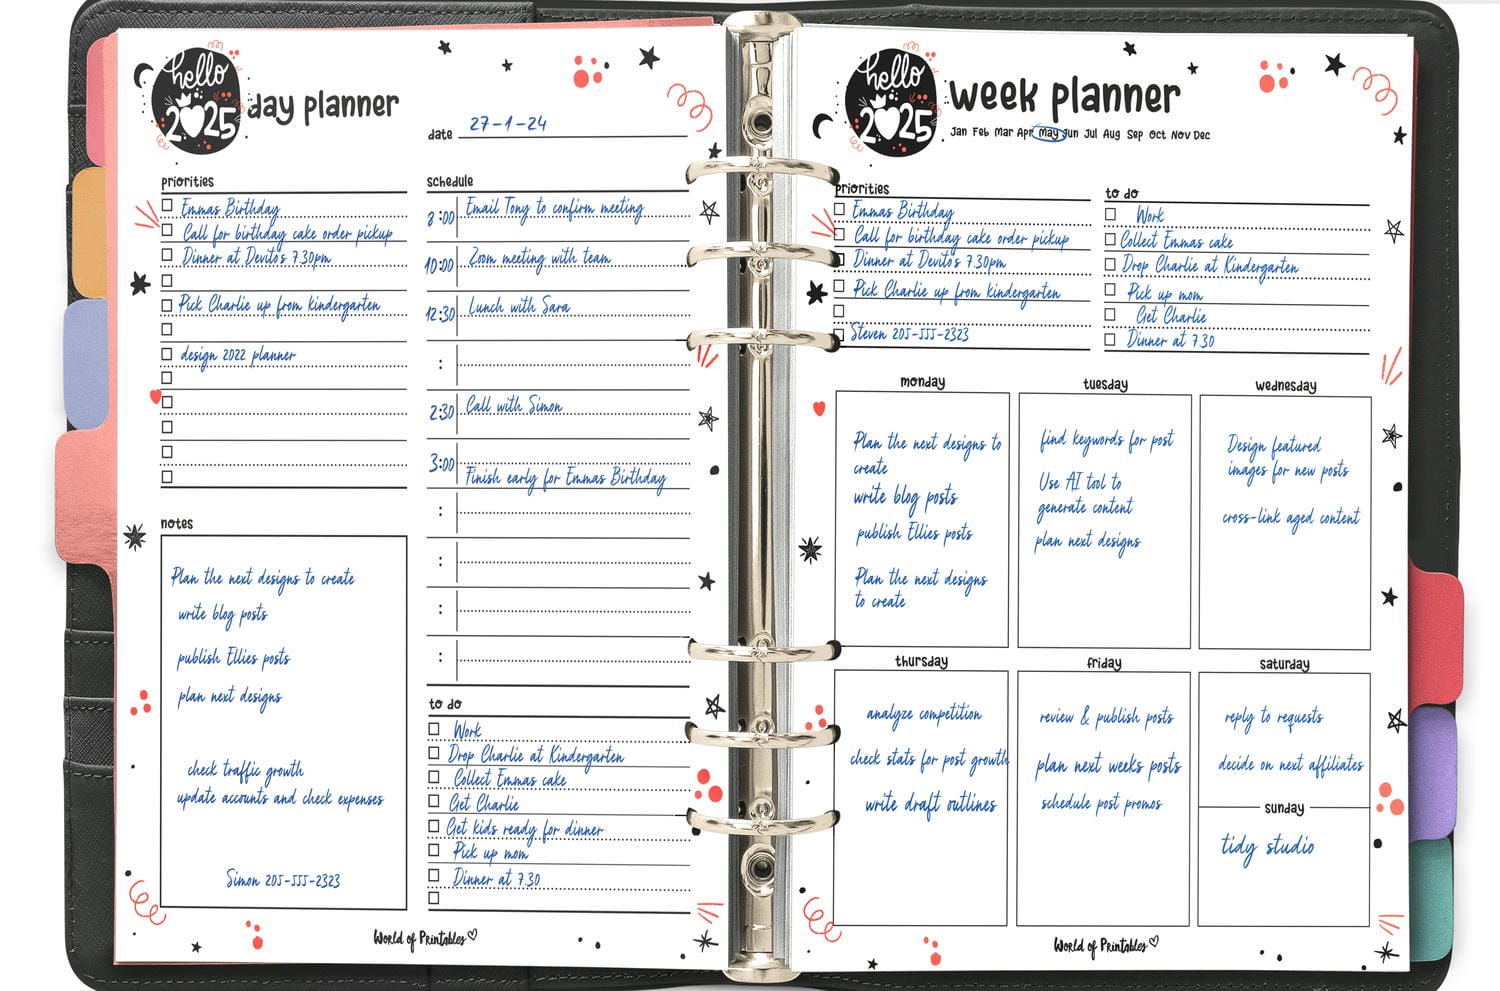 hello
2025
day planner
date 27-1-24
priorities
Emmas Birthday
Call for birthday cake order pickup
Dinner at Devito's 7.30pm
Pick Charlie up from kindergarten
design 2022 planner
notes
Plan the next designs to create
write blog posts
publish Ellies posts
plan next designs
check traffic growth
update accounts and check expenses
Simon 205-555-2323
schedule
8:00 Email Tony to confirm meeting
10:00 Zoom meeting with team
12:30 Lunch with Sara
:
2:30 Call with Simon
3:00
Finish early for Emmas Birthday
:
:
:
:
to do
Work
Drop Charlie at Kindergarten
Collect Emmas cake
Get Charlie
Get kids ready for dinner
Pick up mom
Dinner at 7.30
World of Printables
hello
2025
week planner
Jan Feb Mar Apr May Jun Jul Aug Sep Oct Nov Dec
priorities
Emmas Birthday
Call for birthday cake order pickup
Dinner at Devito's 7.30pm
Pick Charlie up from kindergarten
Steven 205-555-2323
to do
Work
Collect Emmas cake
Drop Charlie at Kindergarten
Pick up mom
Get Charlie
Dinner at 7.30
monday
Plan the next designs to
create
write blog posts
publish Ellies posts
Plan the next designs
to create
tuesday
find keywords for post
Use AI tool to
generate content
plan next designs
wednesday
Design featured
images for new posts
cross-link aged content
thursday
analyze competition
check stats for post growth
write draft outlines
friday
review & publish posts
plan next weeks posts
schedule post promos
saturday
reply to requests
decide on next affiliates
sunday
tidy studio
World of Printables